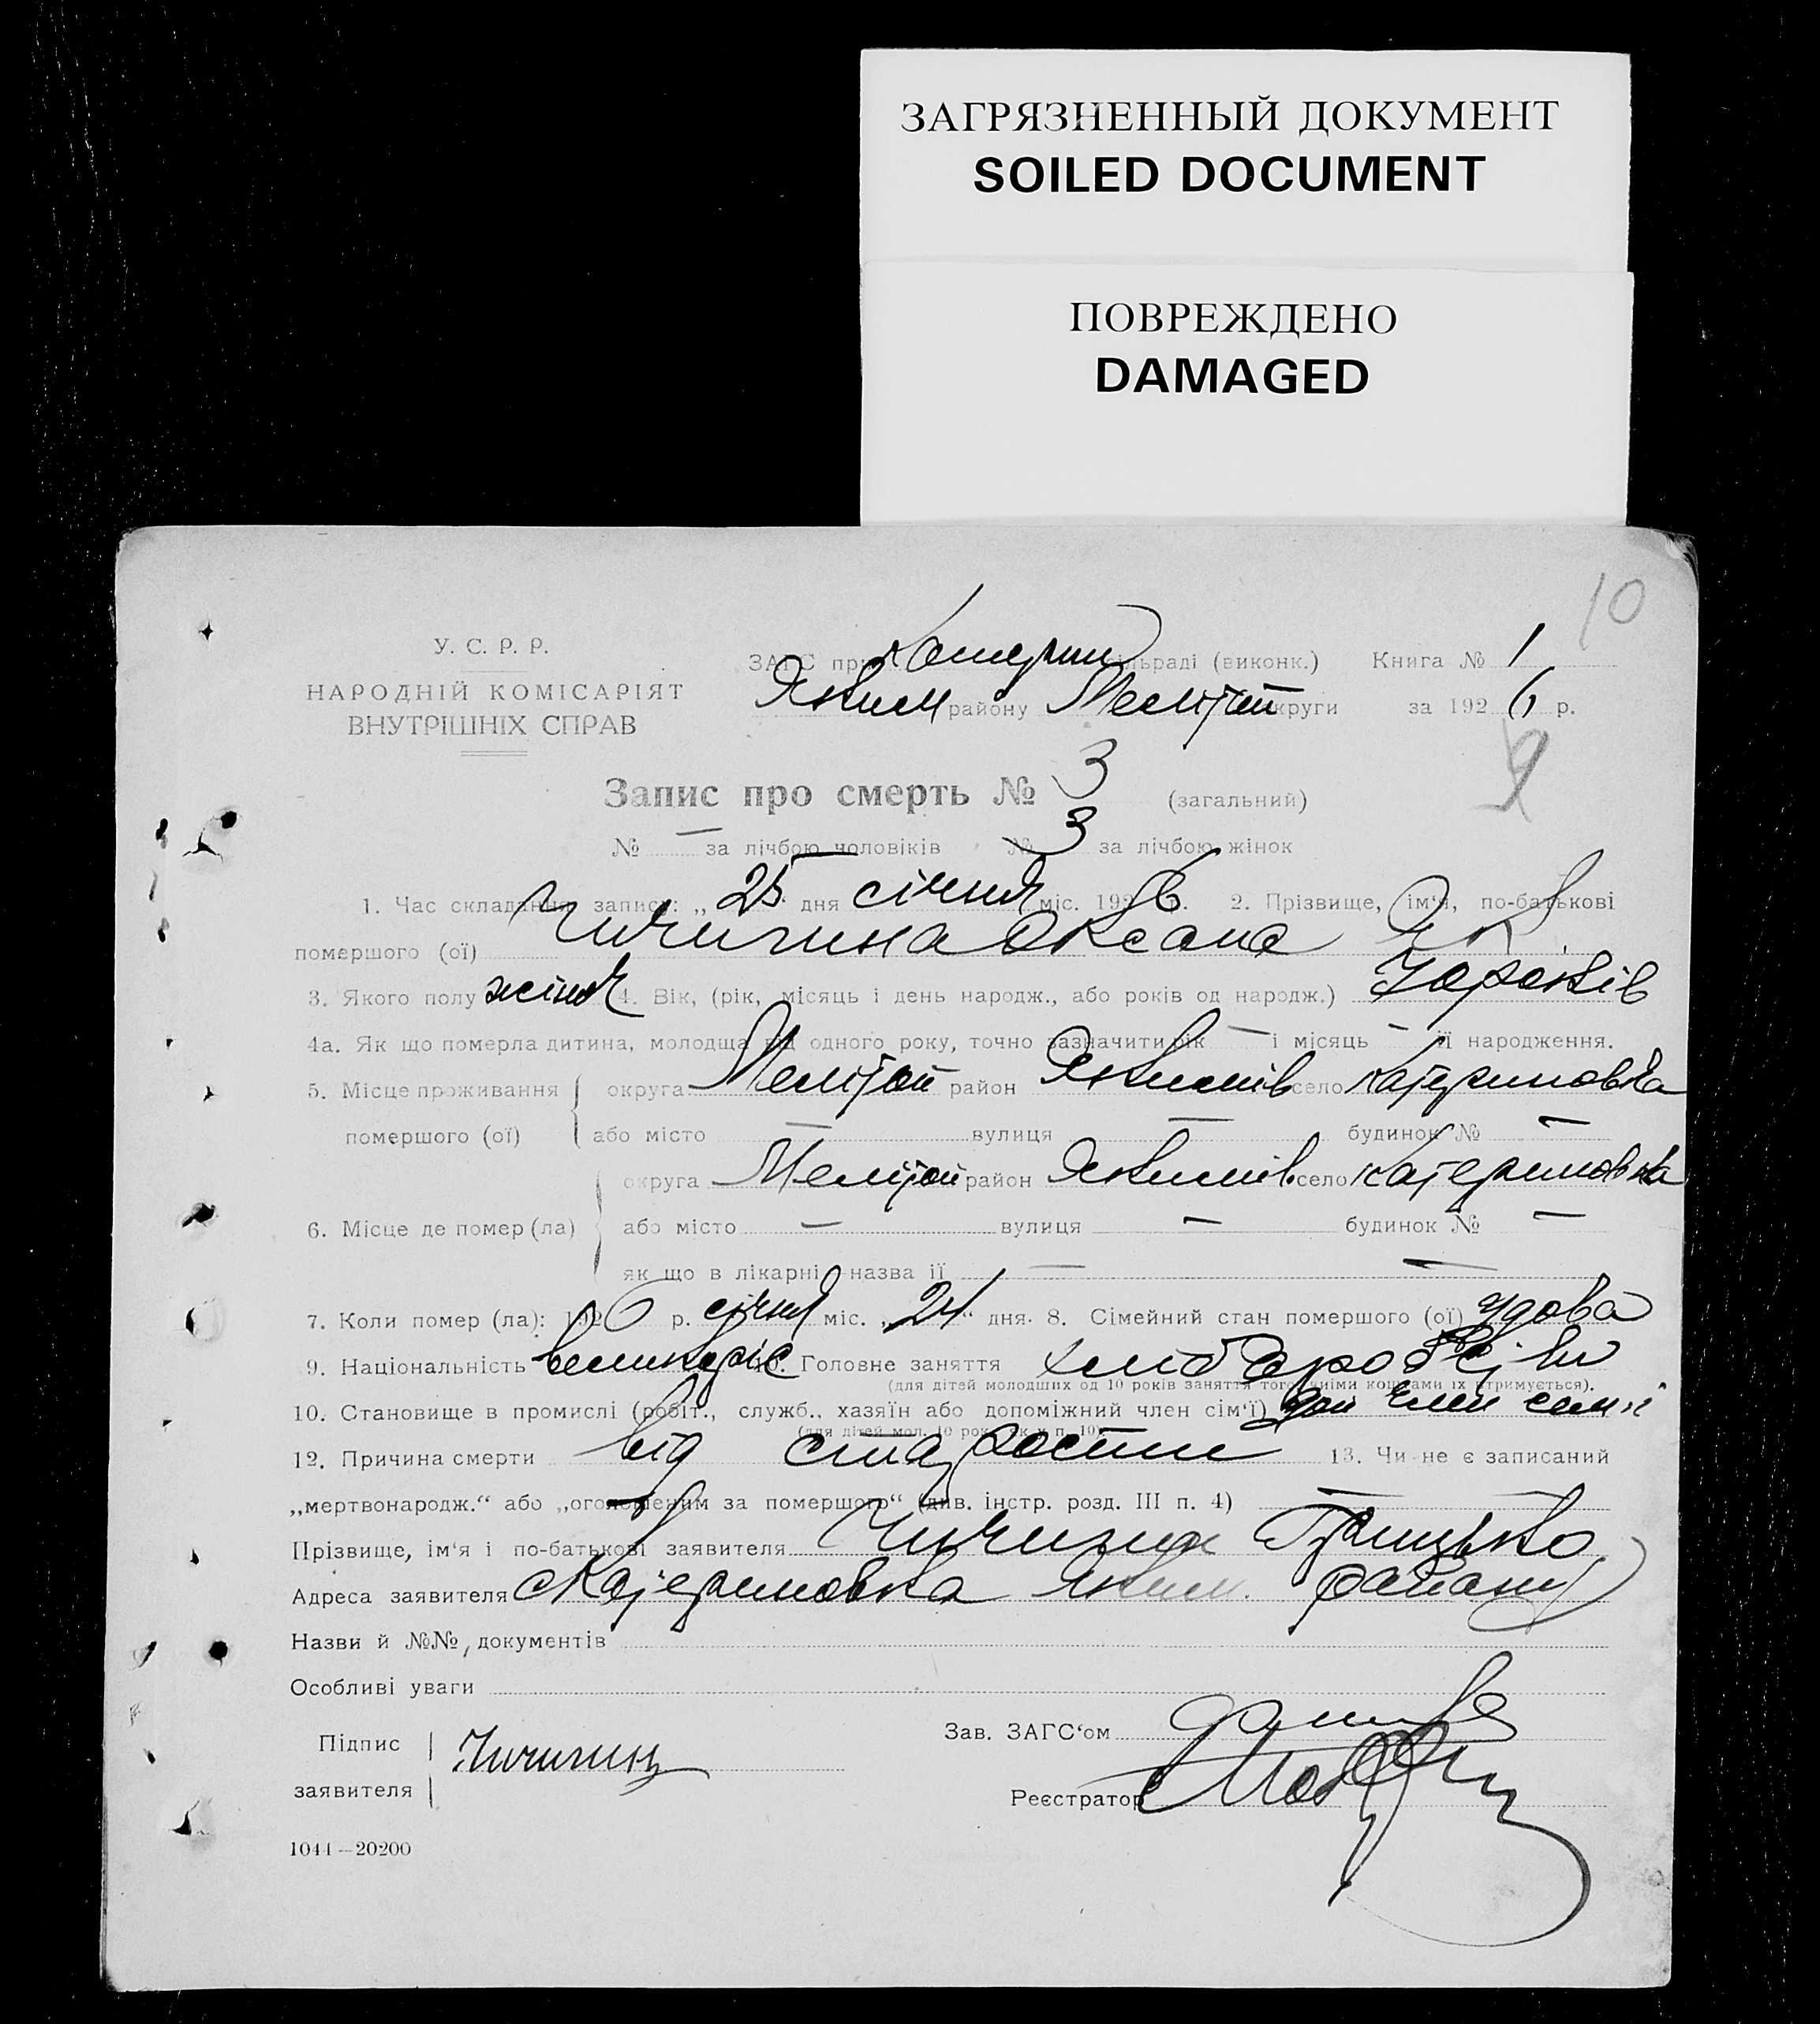 ЗАГРЯЗНЕННЫЙ ДОКУМЕНТ
SOILED DOCUMENT
ПОВРЕЖДЕНО
DAMAGED
10
У. С. Р. Р.
НАРОДНІЙ КОМІСАРІЯТ
ВНУТРІШНІХ СПРАВ
ЗАГС при Катерин сільраді (виконк.) Книга № 1
Яким району Меліт̄оп округи за 1926 р.
9
Запис про смерть № 3 (загальний)
№ — за лічбою чоловіків № 3 за лічбою жінок
1. Час складання запису: „25" дня січня міс. 1926 р. 2. Прізвище, ім'я, по-батькові
помершого (ої) Чичигина Оксана
3. Якого полу жіноч 4. Вік, (рік, місяць і день народж., або років од народж.) років
4а. Як що померла дитина, молодща від одного року, точно зазначити рік — і місяць — її народження.
5. Місце проживання округа Мелітоп район Якимів село Катериновка
помершого (ої) або місто — вулиця — будинок № —
округа Мелітоп район Якимів село Катериновка
6. Місце де помер (ла) або місто — вулиця — будинок № —
як що в лікарні назва її — —
7. Коли помер (ла): 1926 р. січня міс. „24" дня. 8. Сімейний стан помершого (ої) удова
9. Національність великорос 10. Головне заняття хліборобств
(для дітей молодших од 10 років заняття того, чиїми коштами їх утримується).
10. Становище в промислі (робіт., служб., хазяїн або допоміжний член сім'ї) доп член семї
(для дітей мол. 10 рок. як у п. 10)
12. Причина смерти від старости 13. Чи не є записаний
„мертвонародж." або „оголошеним за помершого" (див. інстр. розд. III п. 4) — —
Прізвище, ім'я і по-батькові заявителя Чичигин Грицько
Адреса заявителя с Катериновка Яким. району
Назви й №№, документів
Особливі уваги
Підпис заявителя Чичигин
Зав. ЗАГС'ом
Реєстратор
1044—20200